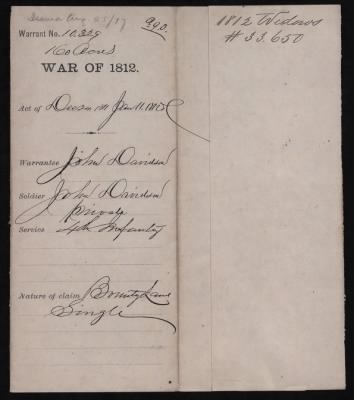 Issued Aug 25/17
Warrant No. 10,329
160 Acres
WAR OF 1812.
Act of
Warrantee John Davidson
Soldier John Davidson
private
Service 4th Infantry
Nature of claim Bounty Land
Single
1812 Widows
# 33.650